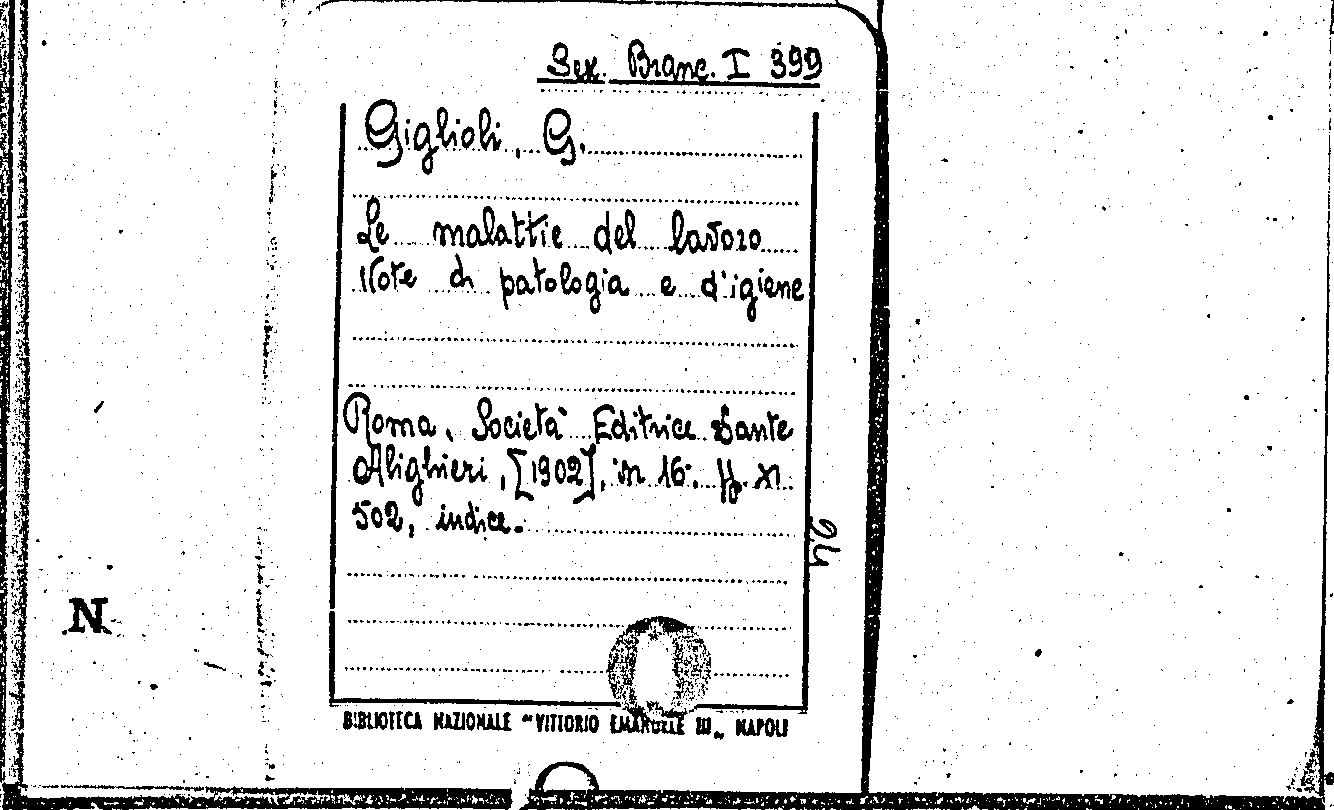 Sez. Branc. I 399
Giglioli, G.
Le malattie del lavoro
Note di patologia e d'igiene
Roma, Società Editrice Dante
Alighieri, [1902], in 16°. pp. XI
502, indice.
24
N
BIBLIOTECA NAZIONALE "VITTORIO EMANUELE III„ NAPOLI